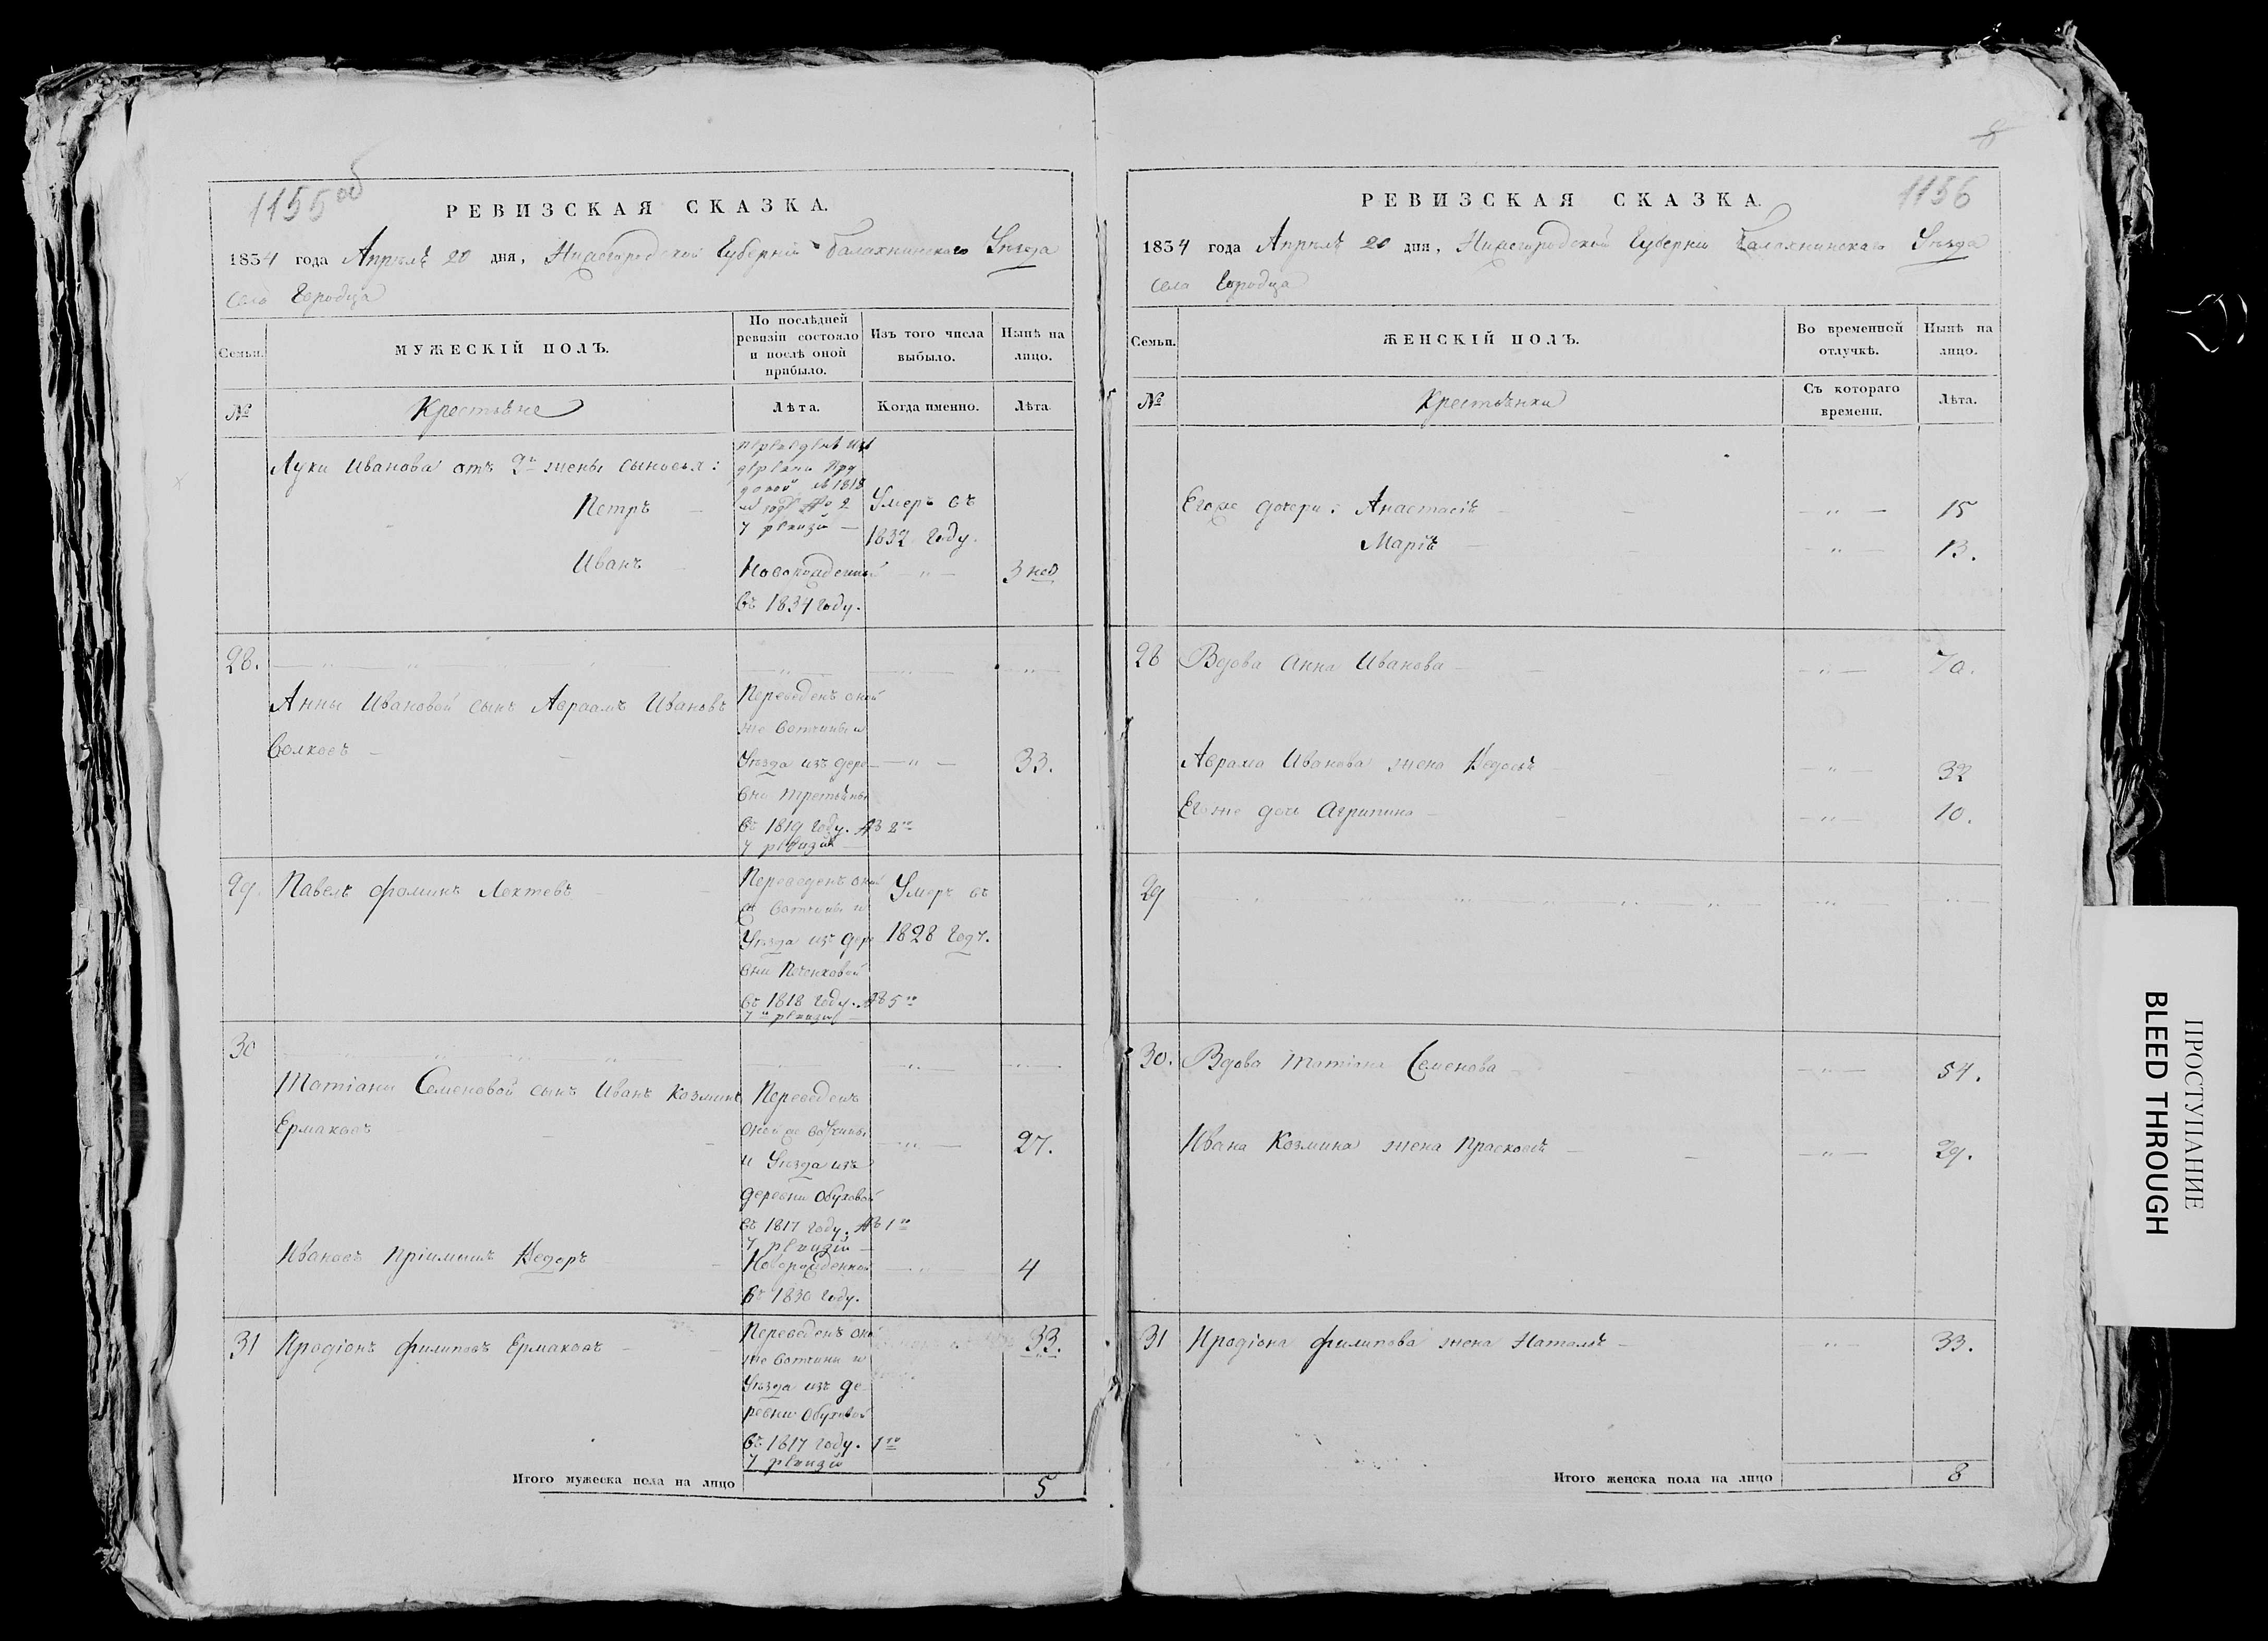 1155 об
РЕВИЗСКАЯ СКАЗКА.
1834 года Апрѣлѣ 20 дня, Нижегородской Губерніи Балахнинскаго Уѣзда
села Городца
Семьи.
МУЖЕСКІЙ ПОЛЪ.
По послѣдней
ревизіи состояло
и послѣ оной
прибыло.
Изъ того числа
выбыло.
Нынѣ на
лицо.
№
Крестьяне
Лѣта.
Когда именно.
Лѣта.
Луки Иванова отъ 2й жены сыновья:
Петръ
7 ревизіи
Умеръ въ
1832 году.
Иванъ
Новорожденный
въ 1834 году.
3 нед
28.
Анны Ивановой сынъ Авраамъ Ивановъ
Волковъ
Переведенъ оной
же вотчины и
Уѣзда изъ дере-
вни Третьяины
въ 1819 году. № 2
7 ревизіи
33.
29.
Павелъ Фоминъ Лехтевъ
Переведенъ оной
же вотчины и
Уѣзда изъ дере
вни Печенковой
въ 1818 году. № 5
7й ревизіи
Умеръ въ
1828 году.
30
Татіаны Семеновой сынъ Иванъ Козминъ
Ермаковъ
Переведенъ
оной же вотчины
и Уѣзда изъ
деревни Обуховой
въ 1817 году. № 1
7 ревизіи
27.
Ивановъ пріимышъ Ѳедоръ
Новорожденной
въ 1830 году.
4
31
Иродіонъ Филиповъ Ермаковъ
Переведенъ оной
же вотчины и
Уѣзда изъ де
ревни Обуховой
въ 1817 году. 1
7 ревизіи
33.
Итого мужеска пола на лицо
5
8
1156
РЕВИЗСКАЯ СКАЗКА.
1834 года Апрѣлѣ 20 дня, Нижегородской Губерніи Балахнинскаго Уѣзда
села Городца
Семьи.
ЖЕНСКІЙ ПОЛЪ.
Во временной
отлучкѣ.
Нынѣ на
лицо.
№
Крестьянки
Съ котораго
времени.
Лѣта.
Егоже дочери: Анастасія 15
Марія 13.
28 Вдова Анна Иванова 70.
Аврама Иванова жена Ѳедосья 32
Егоже дочь Агрипина 10.
29
30. Вдова Татіана Семенова 54.
Ивана Козмина жена Прасковья 29.
31 Иродіона Филипова жена Наталья 33.
Итого женска пола на лицо
8
ПРОСТУПАНИЕ
BLEED THROUGH